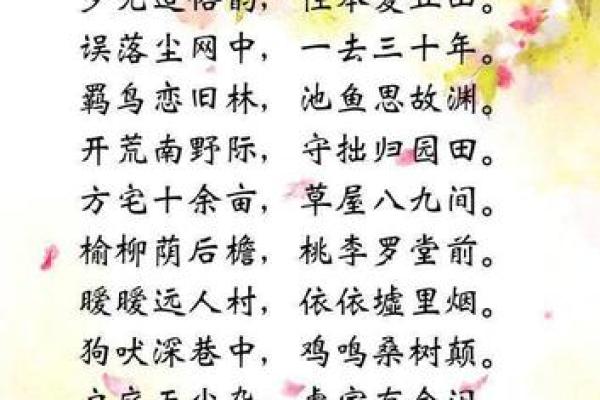 少无适俗韵，性本爱丘
误落尘网中，一去三十年。
羁鸟恋旧林，池鱼思故渊。
开荒南野际，守拙归园田。
方宅十余亩，草屋八九间。
榆柳荫后檐，桃李罗堂前。
暧暧远人村，依依墟里烟。
狗吠深巷中，鸡鸣桑树颠。